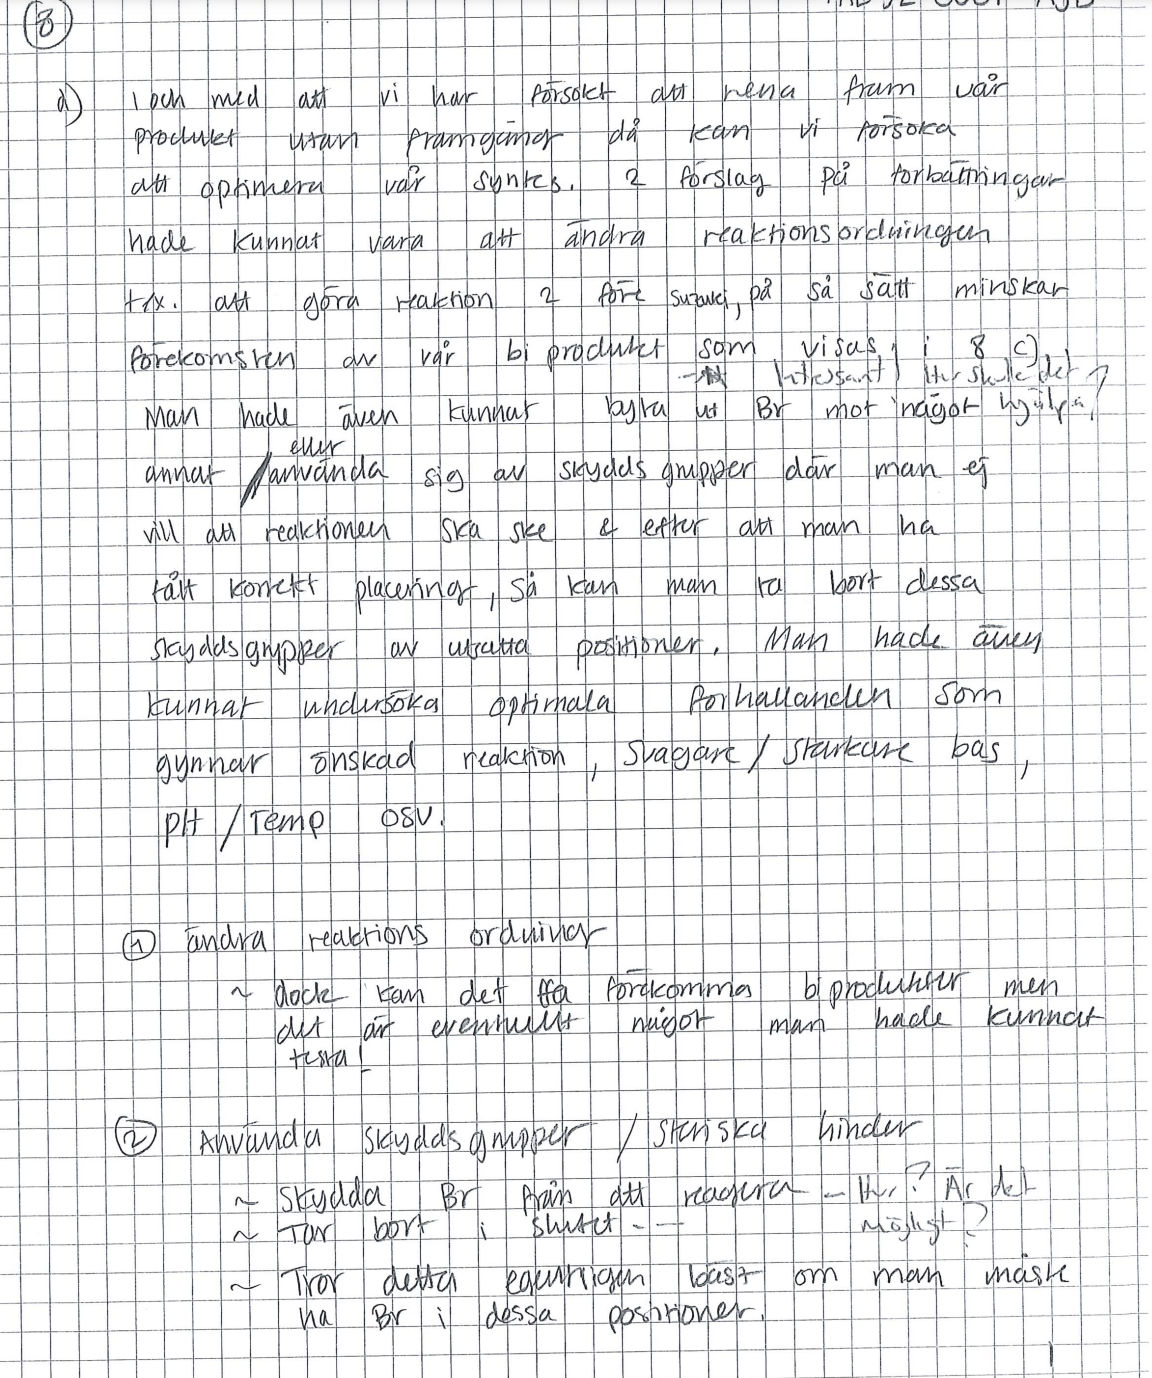 8
d) I och med att vi har försökt att rena fram vår
produkt utan framgång då kan vi försöka
att optimera vår syntes. 2 förslag på förbättningar
hade kunnat vara att ändra reaktionsordningen
t.ex. att göra reaktion 2 före suzuki, på så sätt minskar
förekomsten av vår biprodukt som visas i 8 c)
→ Intressant! Hur skulle det hjälpa?
Man hade även kunnat byta ut Br mot något
annat / eller använda sig av skyddsgrupper där man ej
vill att reaktionen ska ske & efter att man ha
fått korrekt placering, så kan man ta bort dessa
skyddsgrupper av utsatta positioner. Man hade även
kunnat undersöka optimala förhallanden som
gynnar önskad reaktion, svagare / starkare bas,
pH / Temp osv.
① ändra reaktions ordning
~ dock kan det förekomma biprodukter men
det är eventuellt något man hade kunnat
testa!
② Använda skyddsgrupper / steriska hinder
~ Skydda Br från att reagera – Hur? Är det
~ Tar bort i slutet - - möjligt?
~ Tror detta egentligen bäst om man måste
ha Br i dessa positioner.